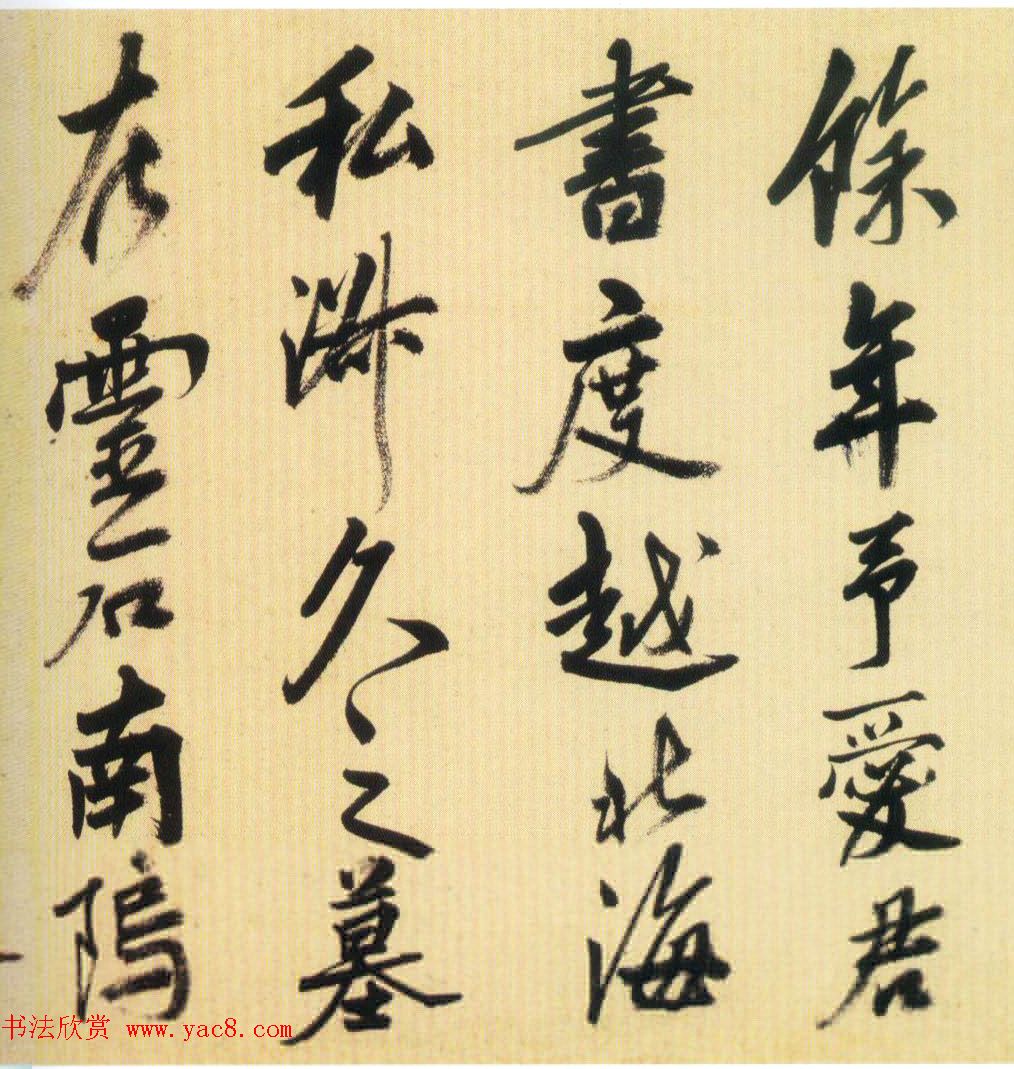 餘年予愛君
書度越北海
私淑久之墓
在靈石南塢
书法欣赏 www.yac8.com